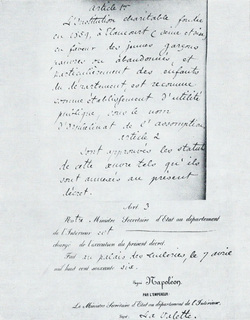 article 1er
L'Institution charitable fondée
en 1859, à Elancourt (Seine et oise)
en faveur des jeunes garçons
pauvres ou abandonnés, et
particulièrement des enfants
du département est reconnue
comme établissement d'utilité
publique, sous le nom
d'orphelinat de l'assomption
article 2
Sont approuvés les statuts
de cette œuvre tels qu'ils
sont annexés au présent
décret.
Art 3
Notre Ministre Secrétaire d'Etat au département
de l'Intérieur est
chargé de l'exécution du présent décret.
Fait au palais des Tuileries, le 7 avril
mil huit cent soixante six.
Signé Napoléon.
PAR L'EMPEREUR.
Le Ministre Secrétaire d'Etat au département de l'Intérieur.
Signé La Valette.